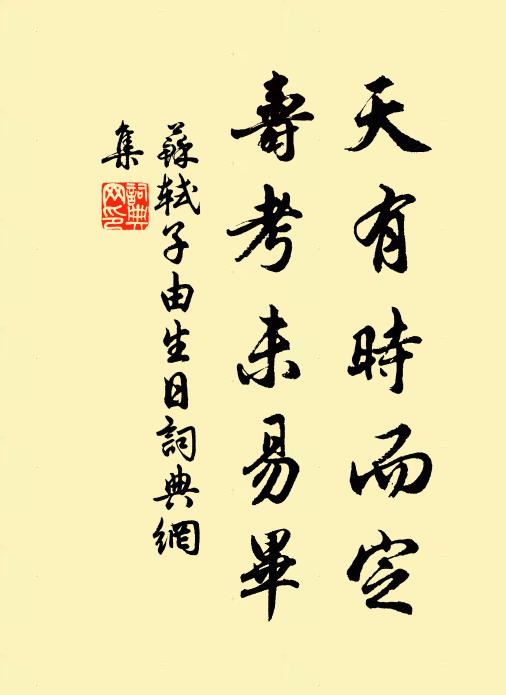 天有時而定
壽考未易畢
蘇軾子由生日詞典網
集
詞典
网印